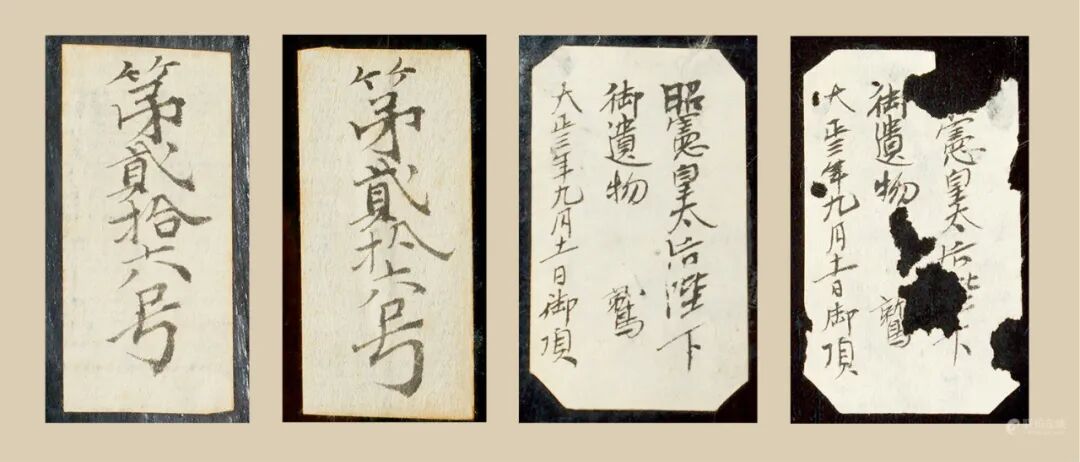 第貳拾六号
第貳拾六号
昭憲皇太后陛下
御遺物 鷲
大正三年九月十一日御頂
憲皇太后陛下
御遺物 鷲
大正三年九月十一日御頂